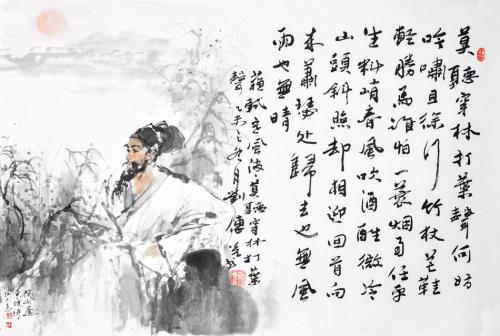 莫聽穿林打葉聲何妨
吟嘯且徐行竹杖芒鞋
輕勝馬誰怕一蓑烟雨任平
生料峭春風吹酒醒微冷
山頭斜照却相迎回首向
来蕭瑟處歸去也無風
雨也無晴
蘇軾定風波莫聽穿林打葉
聲乙未之冬月劉傳